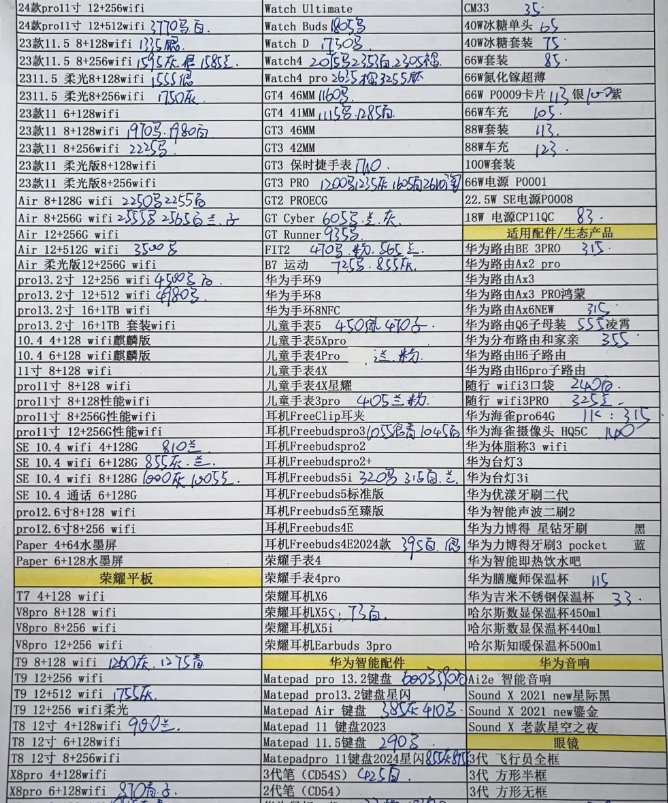 24款pro11寸 12+256wifi
24款pro11寸 12+512wifi 3770号白
23款11.5 8+128wifi 1335
23款11.5 8+256wifi 1595灰 1585
2311.5 柔光8+128wifi 1555
2311.5 柔光8+256wifi 1750灰
23款11 6+128wifi
23款11 8+128wifi 1970号1980白
23款11 8+256wifi 2225号
23款11 柔光版8+128wifi
23款11 柔光版8+256wifi
Air 8+128G wifi 2250号2255白
Air 8+256G wifi 2555号2565白兰.子
Air 12+256G wifi
Air 12+512G wifi 3500号
Air 柔光版12+256G wifi
pro13.2寸 12+256 wifi 4500号白
pro13.2寸 12+512 wifi 4980号
pro13.2寸 16+1TB wifi
pro13.2寸 16+1TB 套装wifi
10.4 4+128 wifi麒麟版
10.4 6+128 wifi麒麟版
11寸 8+128 wifi
pro11寸 8+128 wifi
pro11寸 8+128性能wifi
pro11寸 8+256G性能wifi
pro11寸 12+256G性能wifi
SE 10.4 wifi 4+128G 810兰
SE 10.4 wifi 6+128G 855灰.兰
SE 10.4 wifi 8+128G 1000灰1005兰
SE 10.4 通话 6+128G
pro12.6寸8+128 wifi
pro12.6寸8+256 wifi
Paper 4+64水墨屏
Paper 6+128水墨屏
荣耀平板
T7 4+128 wifi
V8pro 8+128 wifi
V8pro 8+256 wifi
V8pro 12+256 wifi
T9 8+128 wifi 1260灰.1275青
T9 12+256 wifi
T9 12+512 wifi 1755灰
T9 12+256 wifi柔光
T8 12寸 4+128wifi 900兰
T8 12寸 6+128wifi
T8 12寸 8+256wifi
X8pro 4+128wifi
X8pro 6+128wifi 870青.子
Watch Ultimate
Watch Buds 1805号
Watch D 1730号
Watch4 2075号2355白2305
Watch4 pro 2635 3255
GT4 46MM 1160号
GT4 41MM 1115号1285白
GT3 46MM
GT3 42MM
GT3 保时捷手表
GT3 PRO 1200号1235灰1605白2610
GT2 PROECG
GT Cyber 605号.兰.灰
GT Runner 935号
FIT2 470号粉.565兰
B7 运动 725号.855灰
华为手环9
华为手环8
华为手环8NFC
儿童手表5 450 470子
儿童手表5Xpro
儿童手表4Pro 兰.粉
儿童手表4X
儿童手表4X星耀
儿童手表3pro 405兰粉
耳机FreeClip耳夹
耳机Freebudspro3 1055 1045白
耳机Freebudspro2
耳机Freebudspro2+
耳机Freebuds5i 320号315白.兰
耳机Freebuds5标准版
耳机Freebuds5至臻版
耳机Freebuds4E
耳机Freebuds4E2024款 395白
荣耀手表4
荣耀手表4pro
荣耀耳机X6
荣耀耳机X5s 73白
荣耀耳机X5i
荣耀耳机Earbuds 3pro
华为智能配件
Matepad pro 13.2键盘 600号590白
Matepad pro13.2键盘星闪
Matepad Air 键盘 385灰410号
Matepad 11 键盘2023
Matepad 11.5键盘 290号
Matepadpro 11键盘2024星闪
3代笔(CD54S) 425白
2代笔(CD54)
CM33 35
40W冰糖单头 65
40W冰糖套装 75
66W套装 85
66W氮化镓超薄
66W P0009卡片 113银100紫
66W车充 105
88W套装 113
88W车充 123
100W套装
66W电源 P0001
22.5W SE电源P0008
18W 电源CP11QC 83
适用配件/生态产品
华为路由BE 3PRO 315
华为路由Ax2 pro
华为路由Ax3
华为路由Ax3 PRO鸿蒙
华为路由Ax6NEW 315
华为路由Q6子母装 555凌霄
华为分布路由和家亲 355
华为路由H6子路由
华为路由H6pro子路由
随行 wifi3口袋 240白
随行 wifi3PRO 325兰
华为海雀pro64G 315
华为海雀摄像头 HQ5C 140
华为体脂称3 wifi
华为台灯3
华为台灯3i
华为优漾牙刷二代
华为智能声波二刷2
华为力博得 星钻牙刷 黑
华为力博得牙刷3 pocket 蓝
华为智能即热饮水吧
华为膳魔师保温杯 115
华为吉米不锈钢保温杯 33
哈尔斯数显保温杯450ml
哈尔斯数显保温杯440ml
哈尔斯知暖保温杯500ml
华为音响
Ai2e 智能音响
Sound X 2021 new星际黑
Sound X 2021 new鎏金
Sound X 老款星空之夜
眼镜
3代 飞行员全框
3代 方形半框
3代 方形无框